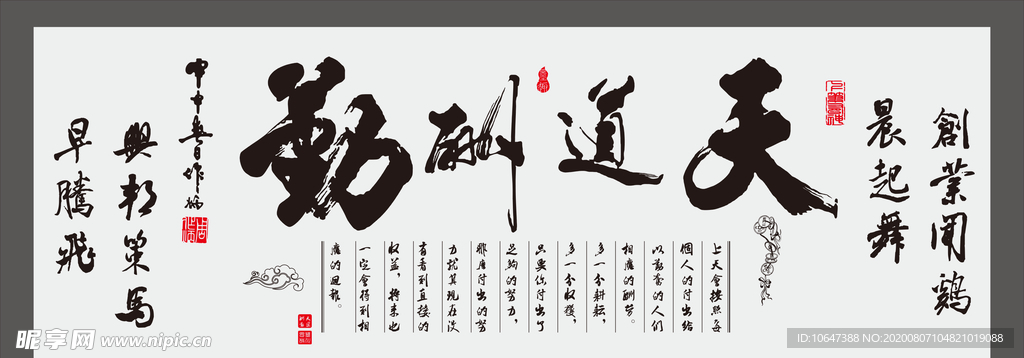 創業聞鷄
晨起舞
天道酬勤
上天會按照每
個人的付出給
以勤奮的人们
相應的酬劳。
多一分耕耘,
多一分收獲,
只要你付出了
足夠的努力,
付出的努
力就算現在没
有看到直接的
收益,將來也
一定會得到相
應的回報。
興邦策馬
早騰飛
昵享网 www.nipic.cn
ID:10647388 NO:20200807104821019088